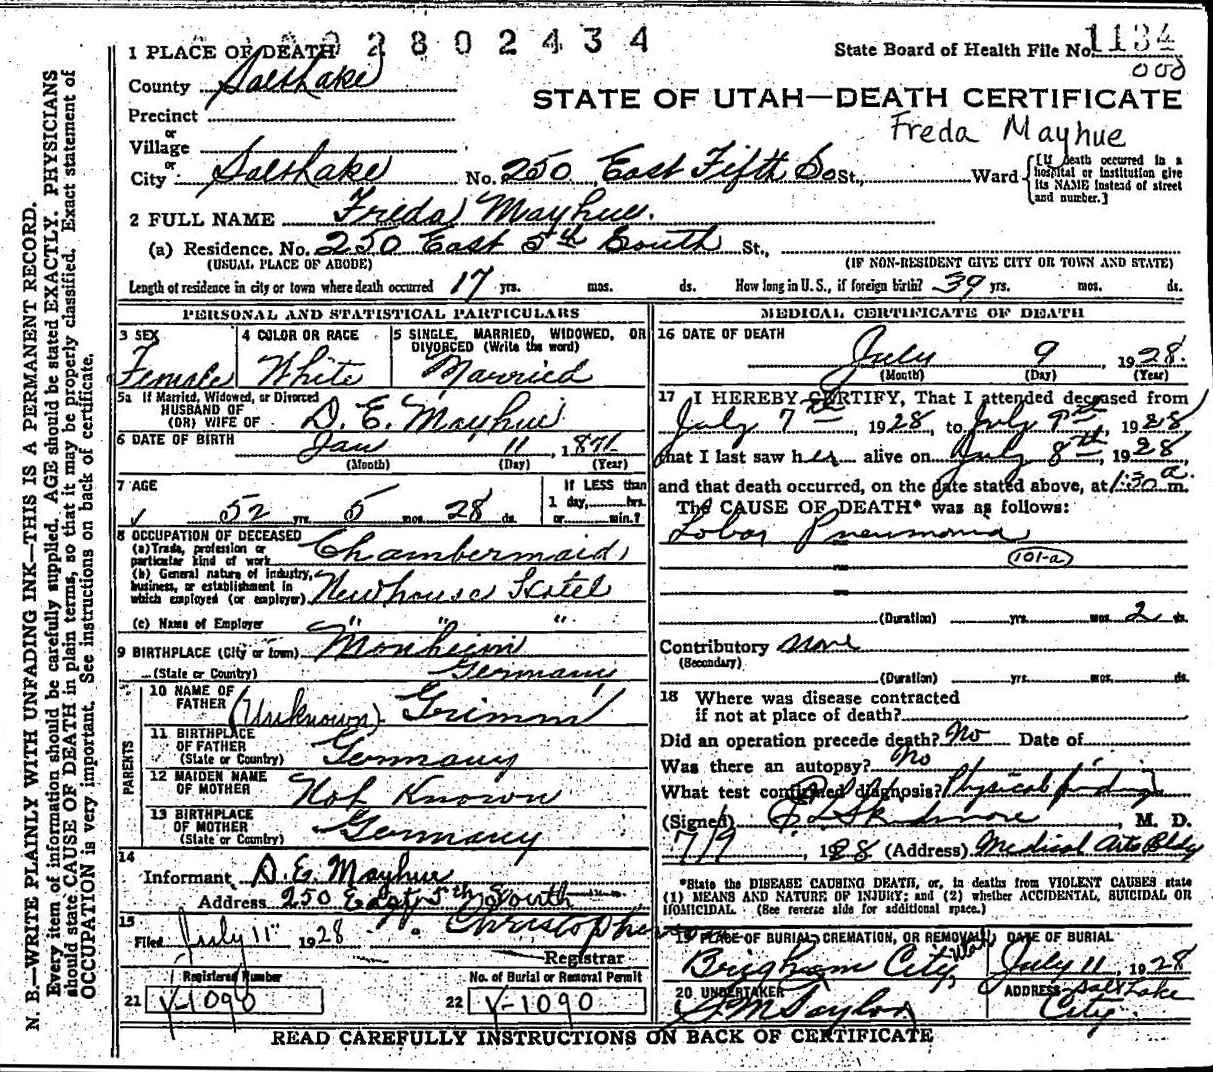 2 8 0 2 4 3 4
1 PLACE OF DEATH
State Board of Health File No. 1134
County Salt Lake
STATE OF UTAH—DEATH CERTIFICATE
Precinct
Freda Mayhue
or
Village
or
City Salt Lake No. 250 East Fifth So St., Ward
[If death occurred in a hospital or institution give its NAME instead of street and number.]
2 FULL NAME Freda Mayhue.
(a) Residence. No. 250 East 5th South St.,
(USUAL PLACE OF ABODE) (IF NON-RESIDENT GIVE CITY OR TOWN AND STATE)
Length of residence in city or town where death occurred 17 yrs. mos. ds. How long in U. S., if foreign birth? 39 yrs. mos. ds.
PERSONAL AND STATISTICAL PARTICULARS
3 SEX
Female
4 COLOR OR RACE
White
5 SINGLE, MARRIED, WIDOWED, OR
DIVORCED (Write the word)
Married
5a If Married, Widowed, or Divorced
HUSBAND OF
(OR) WIFE OF D. E. Mayhue
6 DATE OF BIRTH
Jan 11, 1871
(Month) (Day) (Year)
7 AGE
52 yrs. 5 mos. 28 ds.
If LESS than
1 day, hrs.
or min.?
8 OCCUPATION OF DECEASED
(a) Trade, profession or
particular kind of work Chambermaid
(b) General nature of industry,
business, or establishment in
which employed (or employer) Newhouse Hotel
(c) Name of Employer " " "
9 BIRTHPLACE (City or town) Monheim
(State or Country) Germany
PARENTS
10 NAME OF
FATHER (Unknown) Grimm
11 BIRTHPLACE
OF FATHER
(State or Country) Germany
12 MAIDEN NAME
OF MOTHER Not Known
13 BIRTHPLACE
OF MOTHER
(State or Country) Germany
14
Informant D. E. Mayhue
Address 250 East 5th South
15
Filed July 11 1928
Registrar
Registered Number
21 Y-1090
No. of Burial or Removal Permit
22 Y-1090
MEDICAL CERTIFICATE OF DEATH
16 DATE OF DEATH
July 9 1928.
(Month) (Day) (Year)
17 I HEREBY CERTIFY, That I attended deceased from
July 7th, 1928, to July 9th, 1928
that I last saw her alive on July 8th, 1928,
and that death occurred, on the date stated above, at 1:30 a m.
The CAUSE OF DEATH* was as follows:
Lobar Pneumonia
101-a
(Duration) yrs. mos. 2 ds.
Contributory None
(Secondary)
(Duration) yrs. mos. ds.
18 Where was disease contracted
if not at place of death?
Did an operation precede death? No Date of
Was there an autopsy? No
What test confirmed diagnosis? Physical findings
(Signed) Skidmore, M. D.
7/9, 1928 (Address) Medical Arts Bldg
*State the DISEASE CAUSING DEATH, or, in deaths from VIOLENT CAUSES state
(1) MEANS AND NATURE OF INJURY; and (2) whether ACCIDENTAL, SUICIDAL OR
HOMICIDAL. (See reverse side for additional space.)
19 PLACE OF BURIAL, CREMATION, OR REMOVAL
Brigham City, Utah
DATE OF BURIAL
July 11, 1928
20 UNDERTAKER
ADDRESS Salt Lake
City
READ CAREFULLY INSTRUCTIONS ON BACK OF CERTIFICATE
N. B.—WRITE PLAINLY WITH UNFADING INK—THIS IS A PERMANENT RECORD.
Every item of information should be carefully supplied. AGE should be stated EXACTLY. PHYSICIANS
should state CAUSE OF DEATH in plain terms, so that it may be properly classified. Exact statement of
OCCUPATION is very important. See instructions on back of certificate.